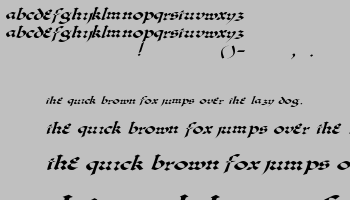 abcdefghijklmnopqrstuvwxyz
abcdefghijklmnopqrstuvwxyz
! ()- , .
the quick brown fox jumps over the lazy dog.
the quick brown fox jumps over the
the quick brown fox jumps o